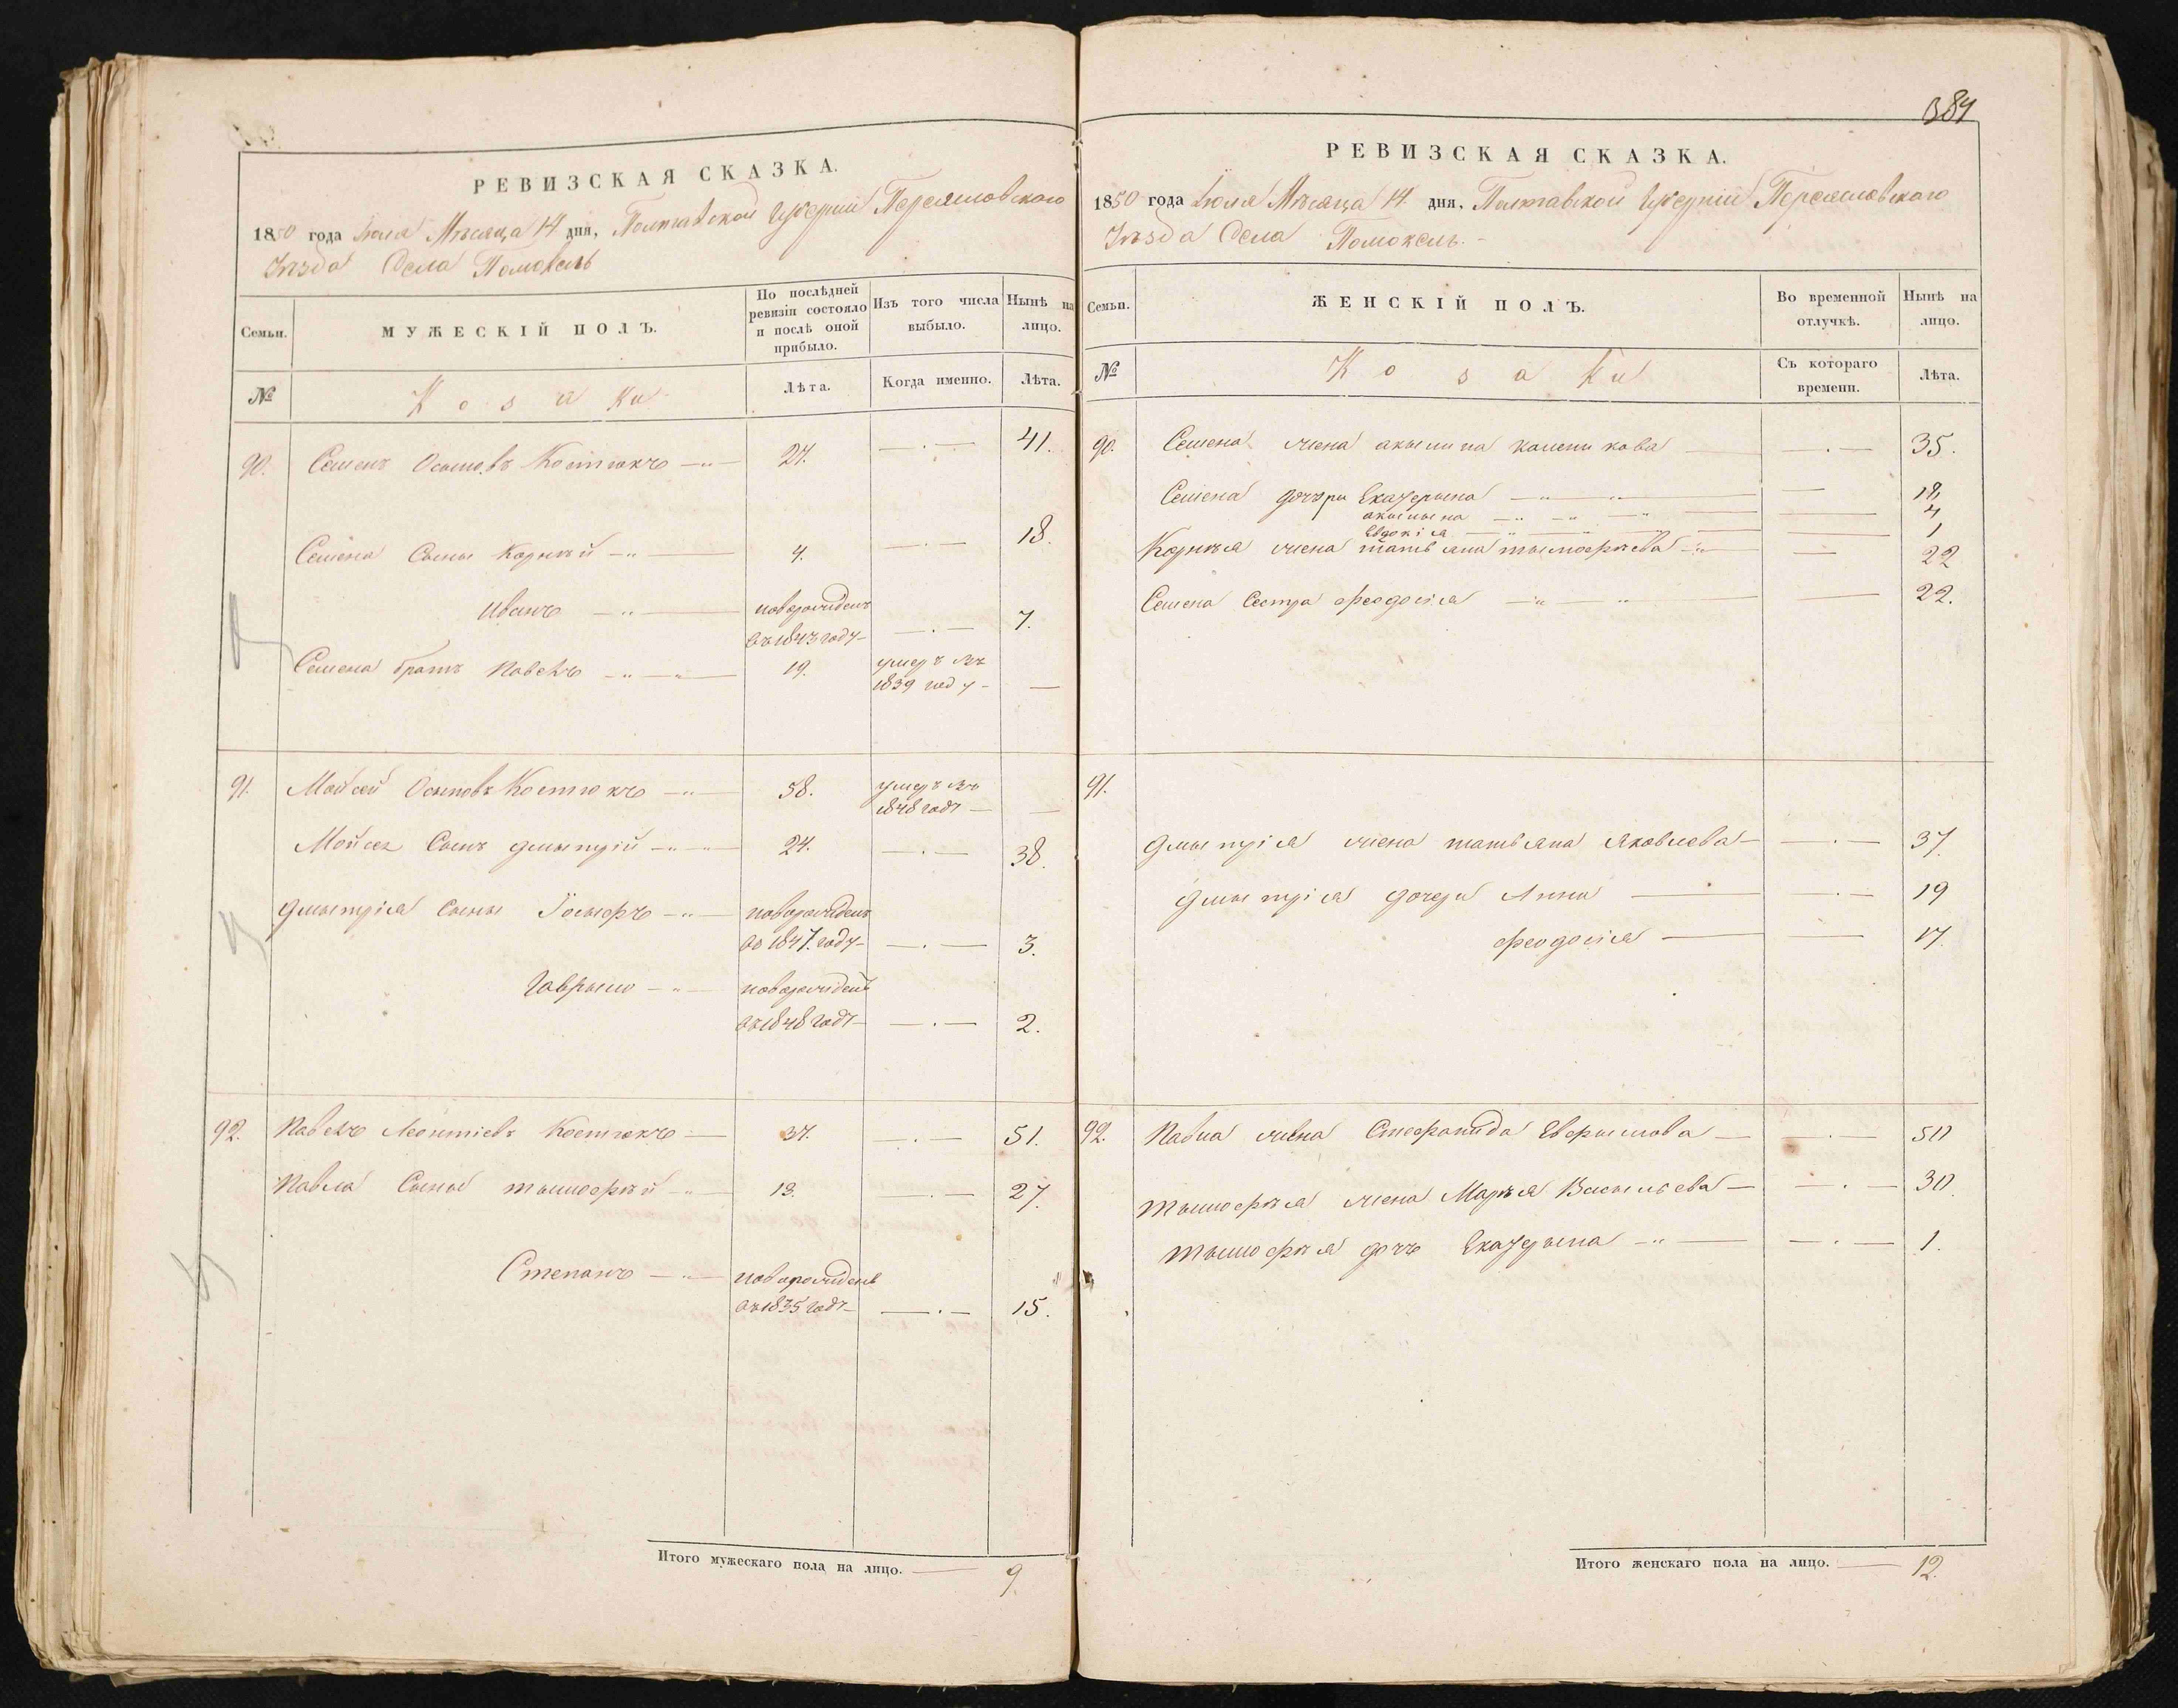 РЕВИЗСКАЯ СКАЗКА.
1850 года Іюля Мѣсяца 14 дня, Полтавской Губерніи Переяславского
Уѣзда Села Помокель
Семьи.
МУЖЕСКІЙ ПОЛЪ.
По послѣдней ревизіи состояло и послѣ оной прибыло.
Изъ того числа выбыло.
Нынѣ на лицо.
№
Козаки
Лѣта.
Когда именно.
Лѣта.
90. Семенъ Осиповъ Костюкъ 27. 41.
Семена Сыны Корнѣй 4. 18.
Иванъ новорожденъ
въ 1843 году 7.
Семена братъ Павелъ 19. умеръ въ
1839 году
91. Мойсей Осиповъ Костюкъ 58. умеръ въ
1848 годъ
Мойсея Сынъ Дмытрій 24. 38.
Дмытрія Сыны Іосыфъ новорожденъ
въ 1847. году 3.
Гаврыло новорожденъ
въ 1848 годъ 2.
92. Павелъ Леонтіевъ Костюкъ 37. 51.
Павла Сыны Тымофѣй 13. 27.
Степанъ новорожденъ
въ 1835 годъ 15.
Итого мужескаго пола на лицо. 9.
384
РЕВИЗСКАЯ СКАЗКА.
1850 года Іюля Мѣсяца 14 дня, Полтавской Губерніи Переяславского
Уѣзда Села Помокель.
Семьи.
ЖЕНСКІЙ ПОЛЪ.
Во временной отлучкѣ.
Нынѣ на лицо.
№
Козаки
Съ котораго времени.
Лѣта.
90. Семена жена акылина каленикова 35.
Семена дочери Екатерына 18,
акылына 4
Евдокія 1
Корнѣя жена татьяна тымофѣева 22
Семена Сестра феодосія 22.
91.
Дмытрія жена татьяна Яковлева 37.
Дмытрія дочери Анна 19
феодосія 17.
92. Павла жена Стефанида Ефрымова 50
Тымофѣя жена Марія Васыльева 30.
Тымофѣя дочь Екатерына 1.
Итого женскаго пола на лицо. 12.